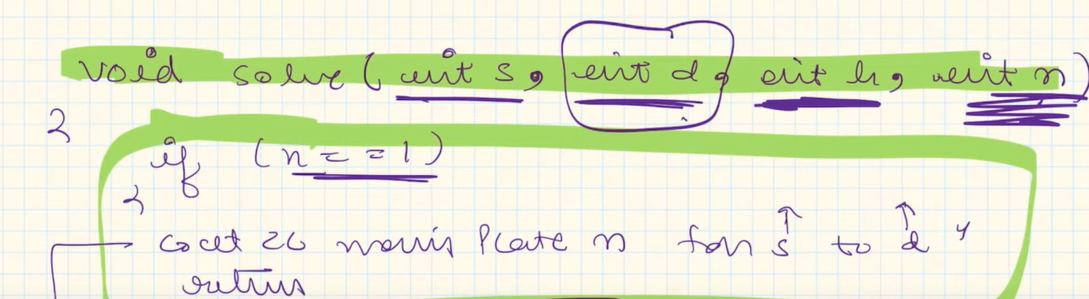 void solve(int s, int d, int h, int n)
{
if (n == 1)
{
cout << moving Plate n from s to d "
return